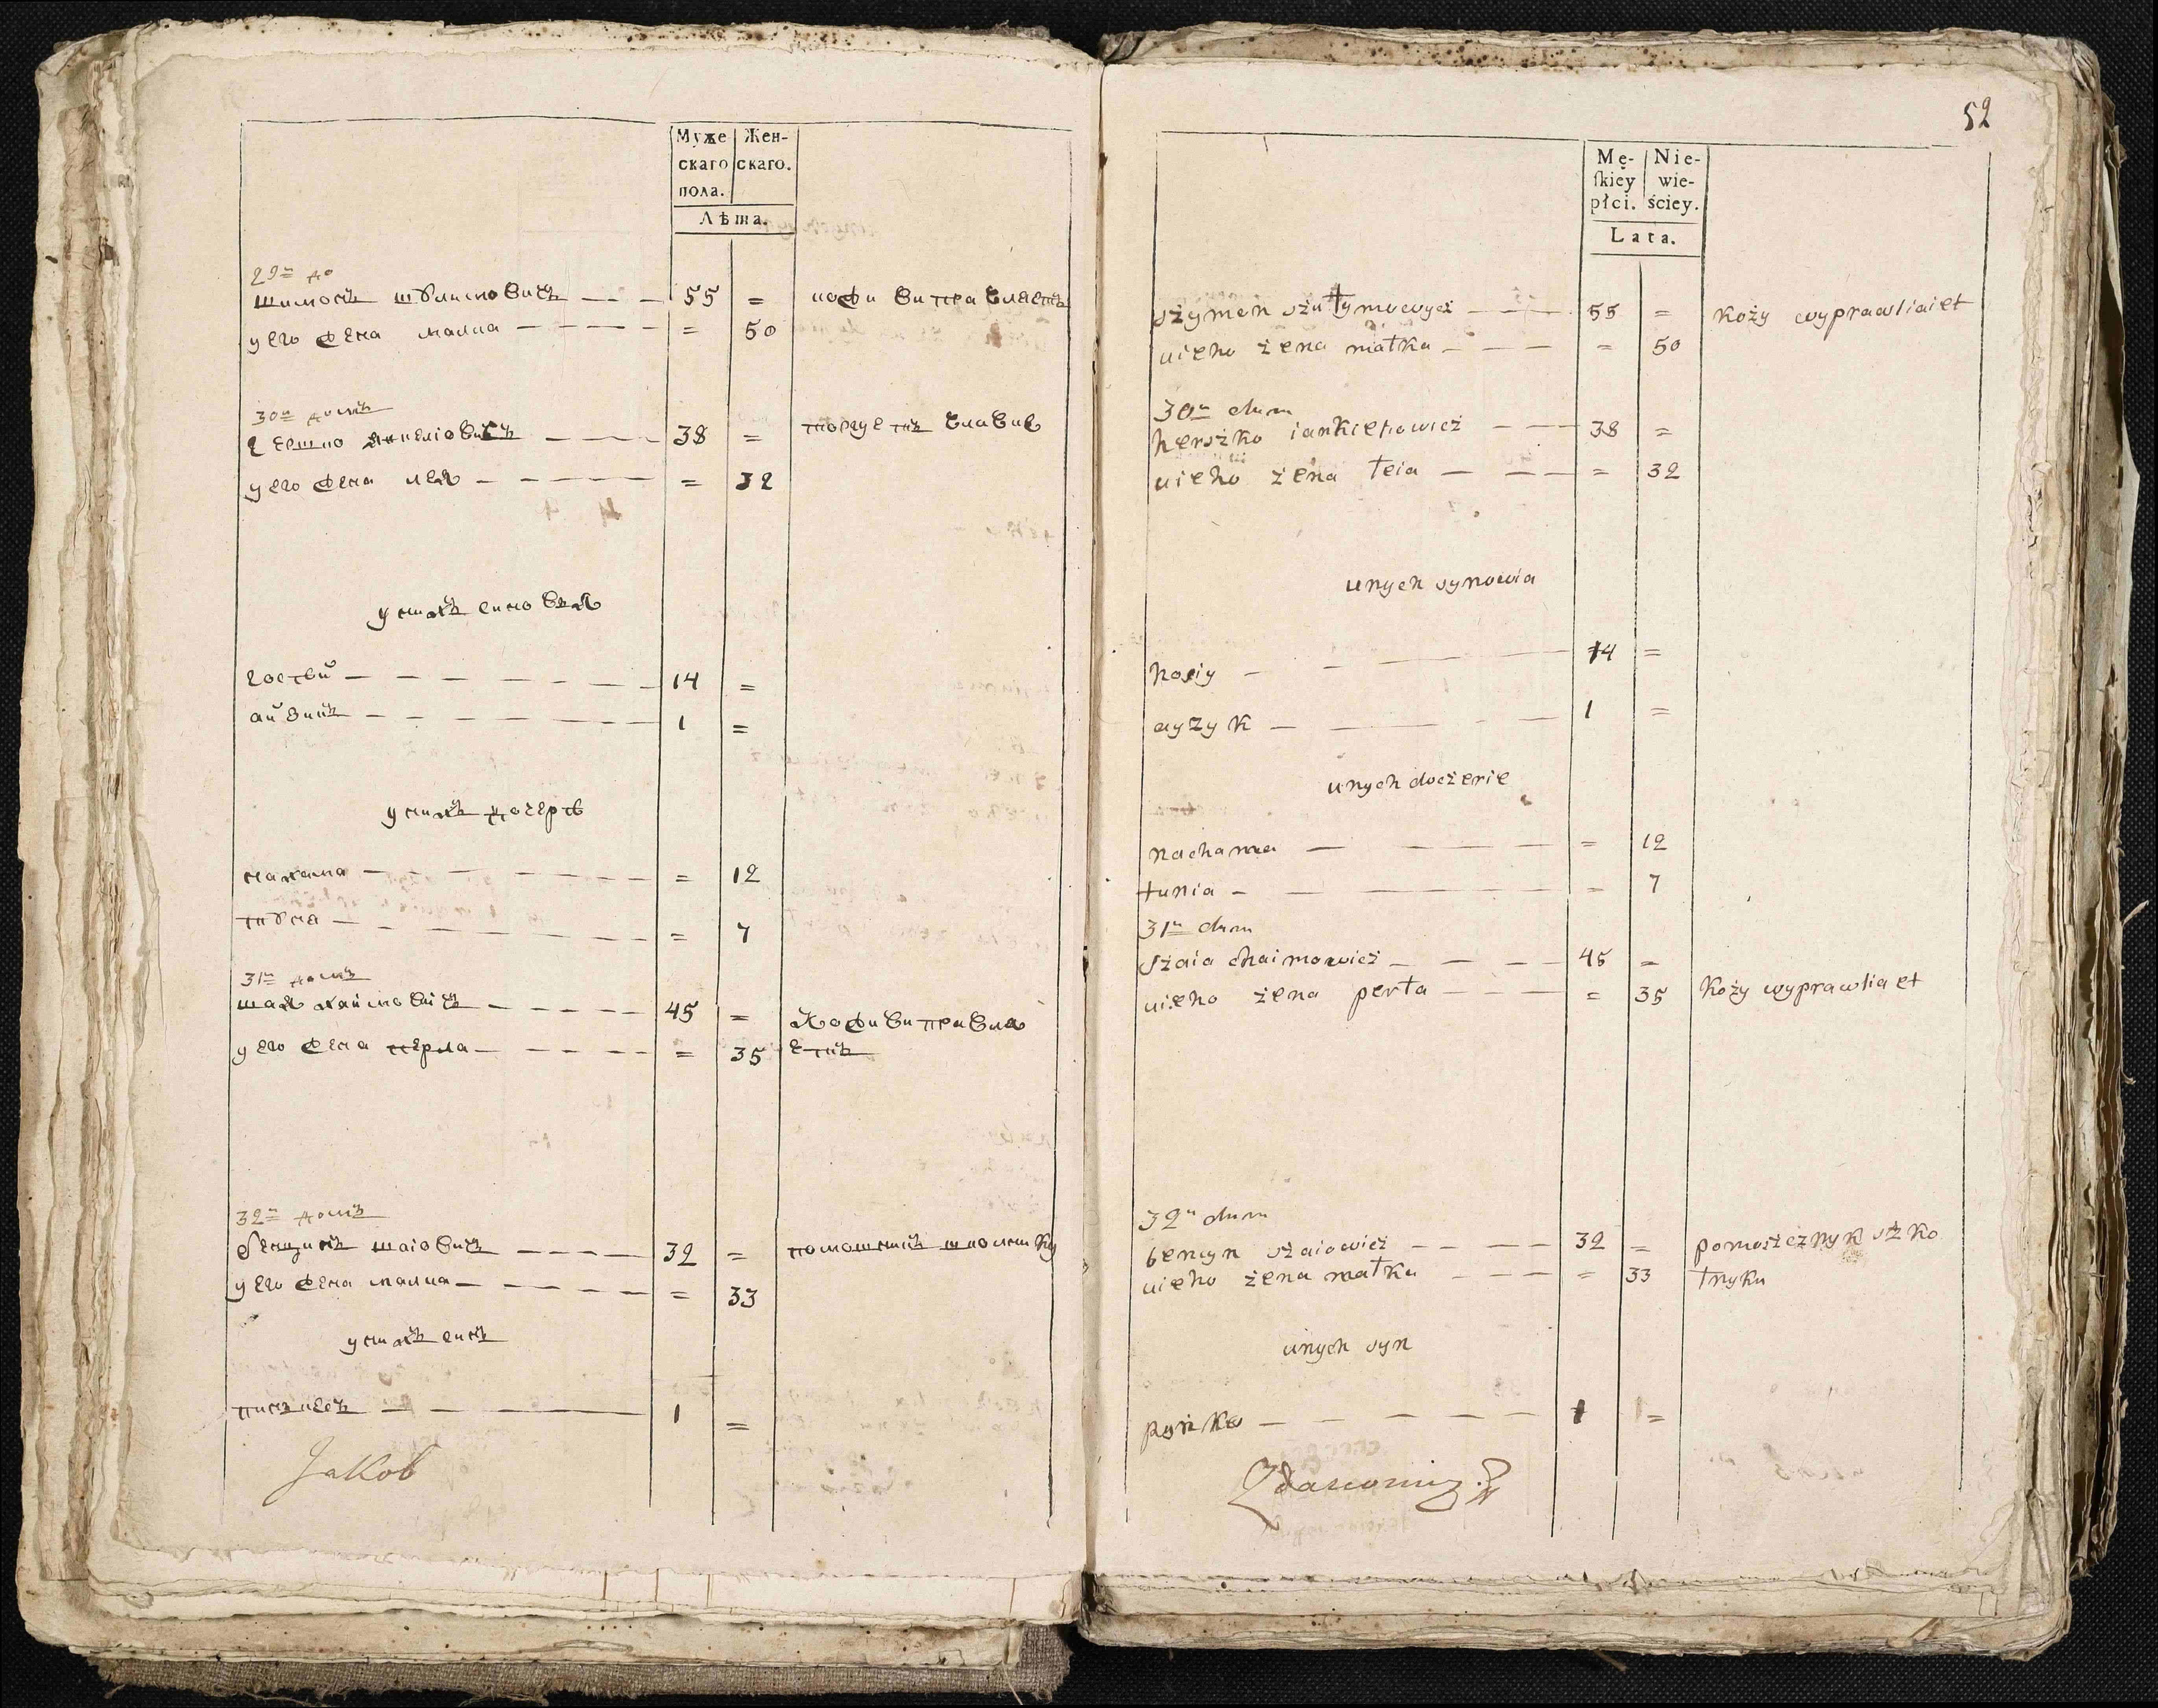 Муже
скаго
пола.
Жен-
скаго.
Лѣта.
29й до
шимонъ шблимовичъ — — — 55 = кожи виправляетъ
у его жена малка — — — — = 50
30й домъ
гершко янкеліовичъ — — — 38 = торгуетъ
у его жена лея — — — — = 32
у нихъ синовья
госій — — — — — — 14 =
айзикъ — — — — — 1 =
у нихъ дочерѣ
нахама — — — — — = 12
— — — — — — = 7
31й домъ
шая хаймовичъ — — — — 45 = Кожи виправля
у его жена перла — — — — = 35 етъ
32й домъ
бенцинъ шаіовичъ — — — — 32 =
у его жена малка — — — — = 33
у нихъ синъ
— — — 1 =
Jakob
52
Mę-
ſkiey
płci.
Nie-
wie-
ściey.
Lata.
szymen — — — 55 = koży wyprawliaiet
uieho żena małka — — — = 50
30й dum
herszko iankielowicż — — 38 =
uieho żena łeia — — — = 32
unych synowia
hosiy — — — — 14 =
ayzyk — — — — 1 =
unych doczerie
nachama — — — — = 12
tunia — — — — = 7
31й dum
szaia chaimowicż — — — 45 =
uieho żena perła — — — = 35 koży wyprawliaet
32й dum
bencyn szaiowicż — — — 32 = pomoszcznyk szko
uieho żena małka — — — = 33 łnyku
unych syn
pyńko — — — — — 1 =